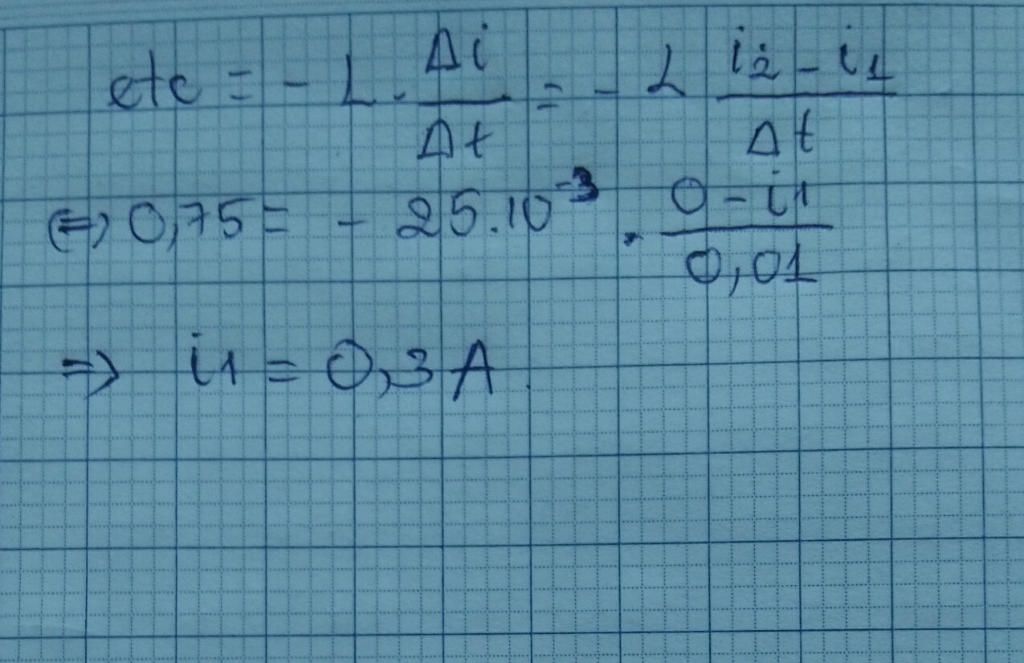 etc = - L . Δi/Δt = - L i2 - i1/Δt
⇔ 0,75 = - 25.10^-3 . 0 - i1/0,01
=> i1 = 0,3 A